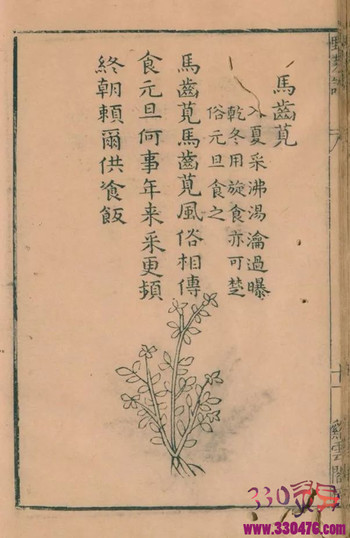 馬齒莧
入夏采沸湯瀹過曝
乾冬用旋食亦可楚
俗元旦食之
馬齒莧馬齒莧風俗相傳
食元旦何事年来采更頻
終朝賴爾供飡飯
330